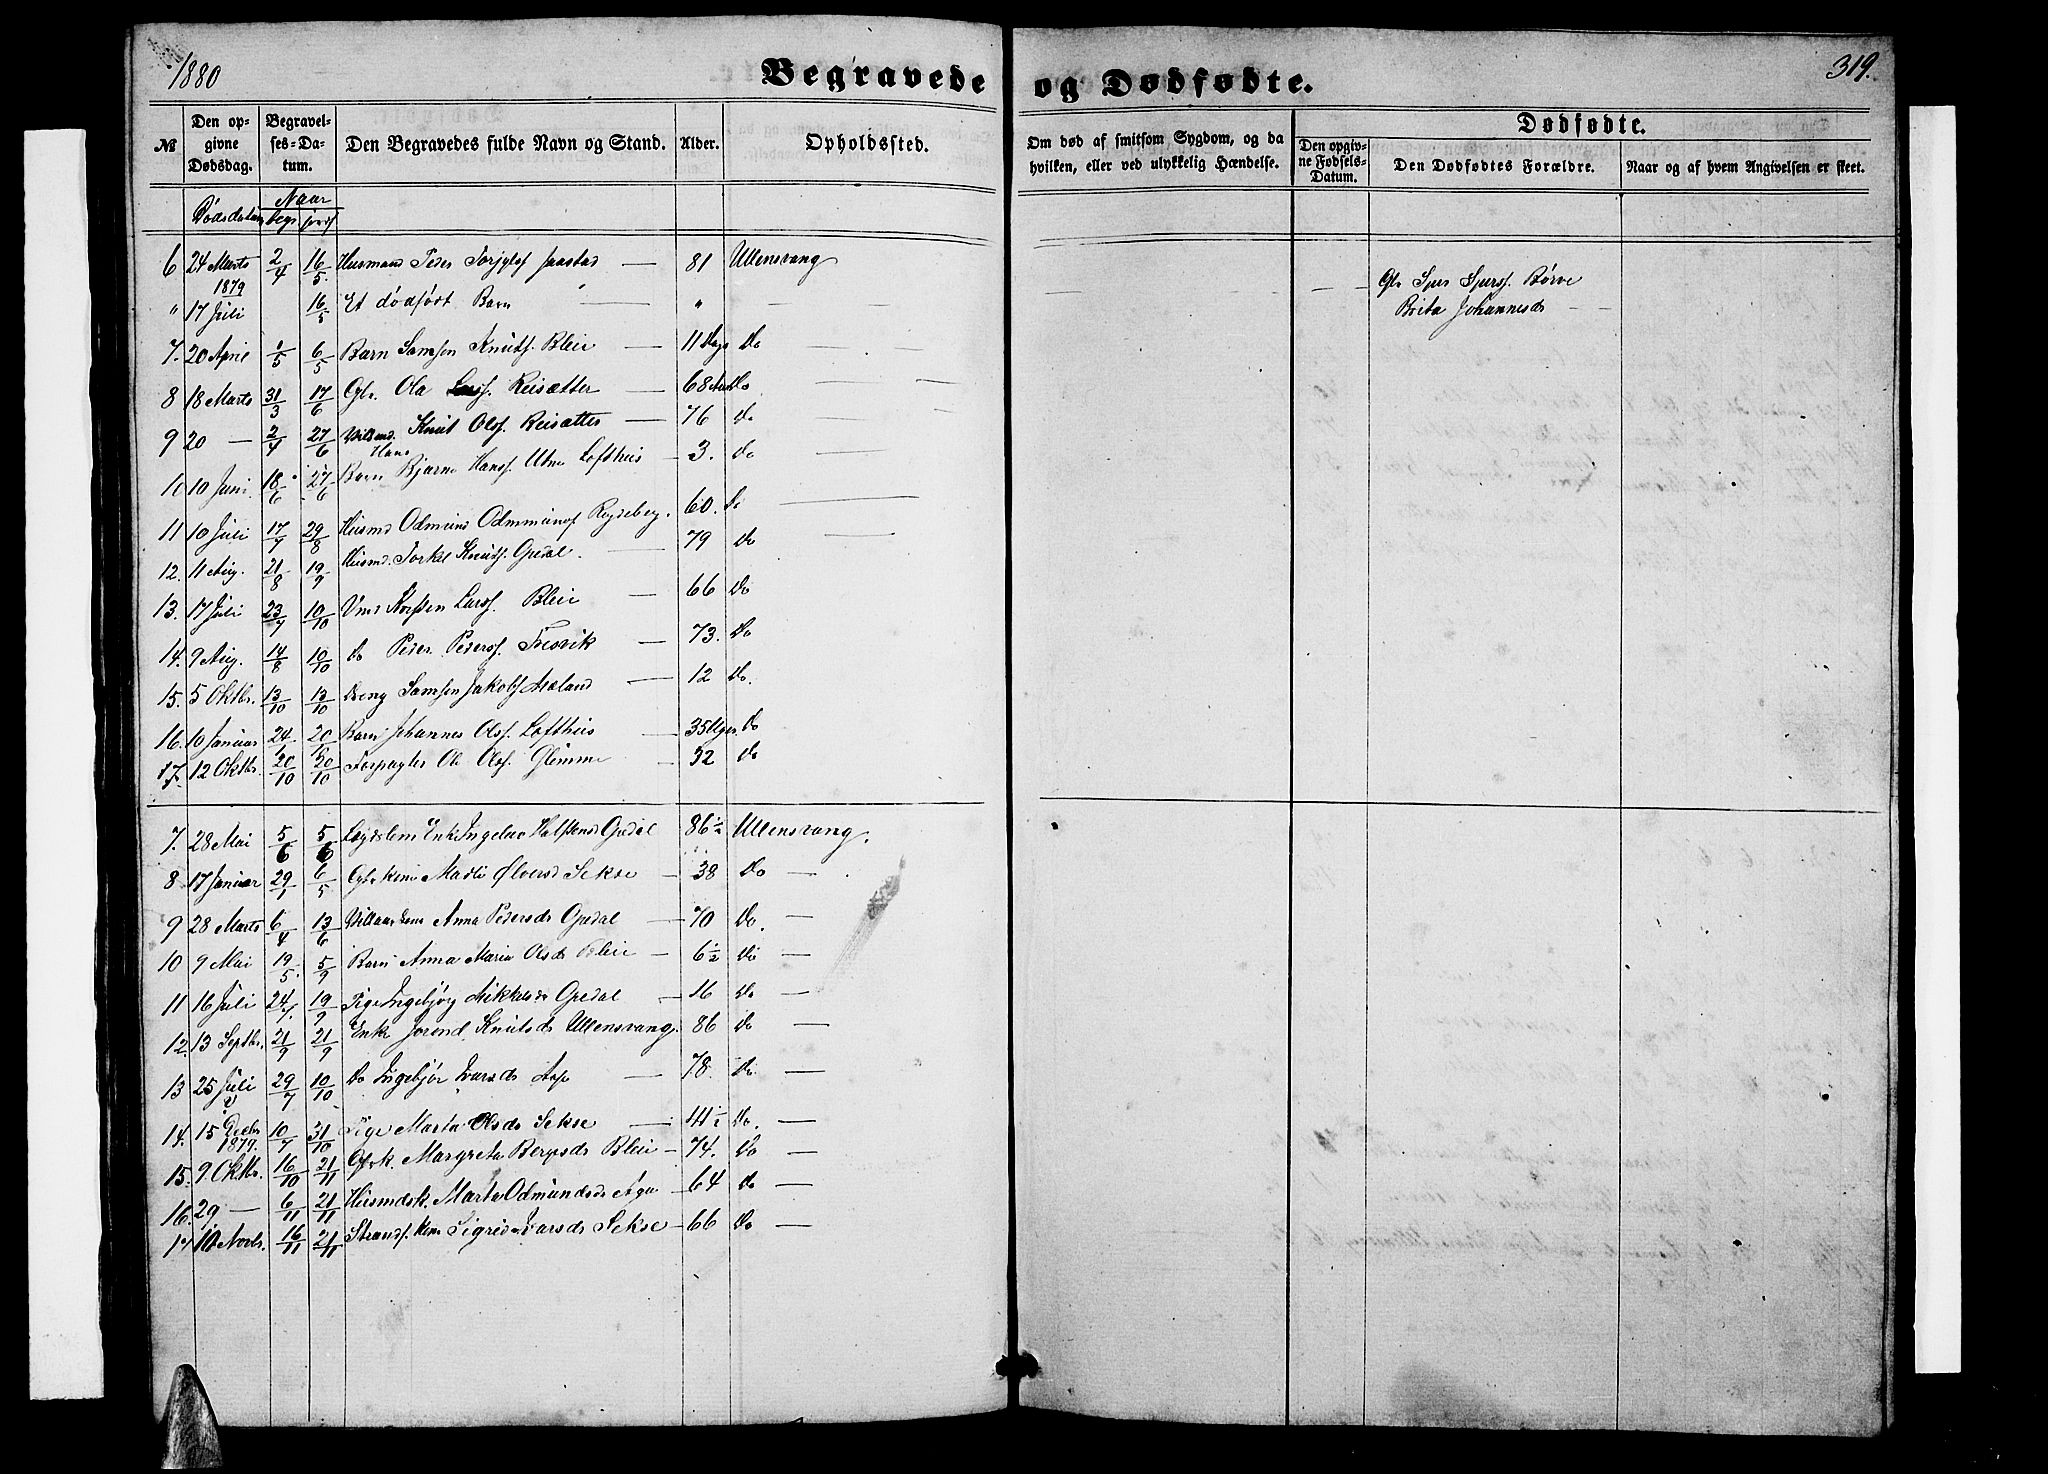 1880 Begravede og Dødfødte. 319.
№ Den opgivne Dødsdag. Begravelses-Datum. Den Begravedes fulde Navn og Stand. Alder. Opholdssted. Om død af smitsom Sygdom, og da hvilken, eller ved ulykkelig Hændelse. Dødfødte. Den opgivne Fødsels-Datum. Den Dødfødtes Forældre. Naar og af hvem Angivelsen er skeet.
Dødsdatum Naar begr jordf
6 24 Marts 2/4 16/5 Husmand Peder 81 Ullensvang
" 1879 17 Juli 16/5 Et dødfødt Barn " Gbr Sjur Sjurss. Børve
Brita Johannesdr
7. 20 April 1/5 6/5 Barn Samson Knuts. Bleie 11 Dage Do
8 18 Marts 31/3 17/6 Gbr. Ola Larss. Reisæter 68 Do
9 20 — 2/4 27/6 Knut Olss. Reisæter 76 Do
10 10 Juni 18/6 27/6 Barn Hans Bjarne Hanss. Utne Lofthus 3. Do
11 10 Juli 17/7 29/8 Husmd Odmund 60. Do
12. 11 Aug. 21/8 19/9 Husmd. Torkel Knuts. Opedal. 79 Do
13. 17 Juli 23/7 10/10 Larss. Bleie 66 Do
14. 9 Aug. 14/8 10/10 do Peder Pederss. Tresvik 73. Do
15. 5 Oktbr. 13/10 13/10 Dreng Samson Jakobs 12 Do.
16. 10 Januar 24/1 20/10 Barn Johannes Olss. Lofthus 35 Uger. Do
17. 12 Oktbr. 20/10 20/10 Forpagter Ole Olss. 52 Do
7. 28 Mai 5/6 5/6 Lægdslem Enke Ingebor Opedal 86½ Ullensvang.
8 17 Januar 29/1 6/5 Gbrkone Madli Ølversd Sekse 38 Do —
9 28 Marts 6/4 13/6 Anna Pedersdr Opedal 70 Do. —
10 9 Mai 19/5. 5/9 Barn Anna Maria Olsdr Bleie 6½ Do —
11 16 Juli 24/7. 19/9 Pige Ingebjørg Mikkelsdr Opedal 16 Do —
12. 13 Septbr. 21/9 21/9 Enke Jorend Knutsdr Ullensvang. 86 Do —
13 25 Juli 29/7 10/10 Do Ingebjør Ivarsdr 78. Do. —
14. 15 Decbr 1879. 10/7 31/10 Pige Marta Olsdr Sekse 41½ Do. —
15. 9 Oktbr. 16/10 21/11 Margreta Bleie 74. Do —
16. 29 — 6/11 21/11 Husmdsk. Marta Odmundsdr Aga 64 Do —
17 10 Novbr. 16/11 21/11 Kone Sigrid Ivarsdr Sekse 66 Do —